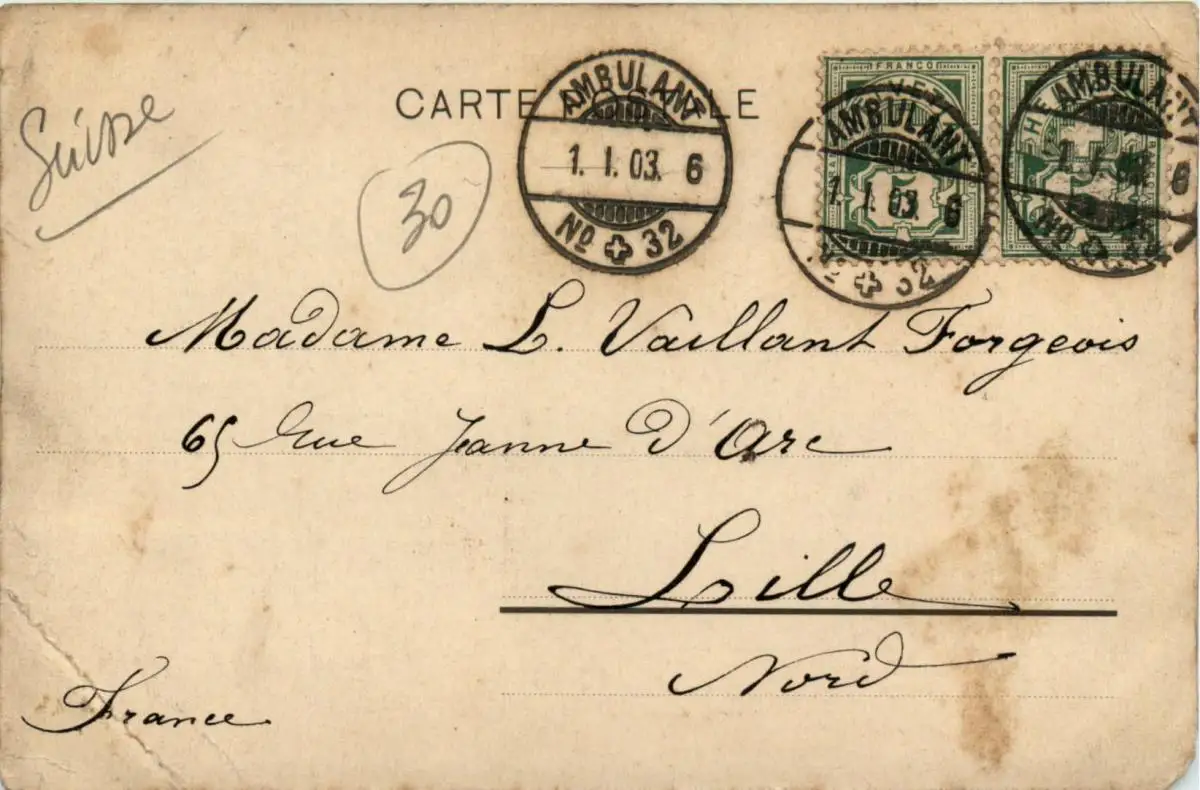 Suisse
CARTE POSTALE
30
AMBULANT
1. I. 03. 6
No 32
FRANCO
AMBULANT
1. I. 03. 6
No 32
5
HE
AMBULANT
1. I. 6
No
5
Madame L. Vaillant Forgeois
65 Rue Jeanne d'Arc
Lille
Nord
France